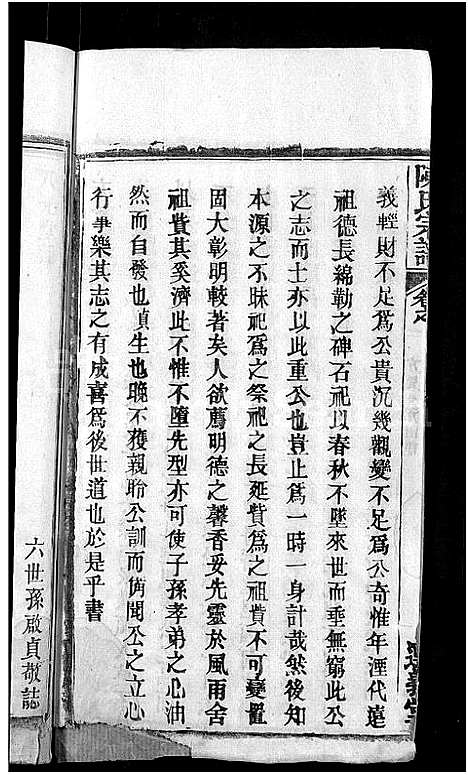 陳氏宗譜
義輕財不足爲公貴沉幾觀變不足爲公奇惟年湮代遠
祖德長綿勒之碑石祀以春秋不墜來世而垂無窮此公
之志而士亦以此重公也豈止爲一時一身計哉然後知
本源之不昧祀爲之祭祀之長延貲爲之祖貲不可變置
固大彰明較著矣人欲薦明德之馨香妥先靈於風雨舍
祖貲其奚濟此不惟不墮先型亦可使子孫孝弟之心油
然而自發也貞生也晚不獲親聆公訓而側聞公之立心
行事樂其志之有成喜爲後世道也於是乎書
六世孫啟貞敬誌